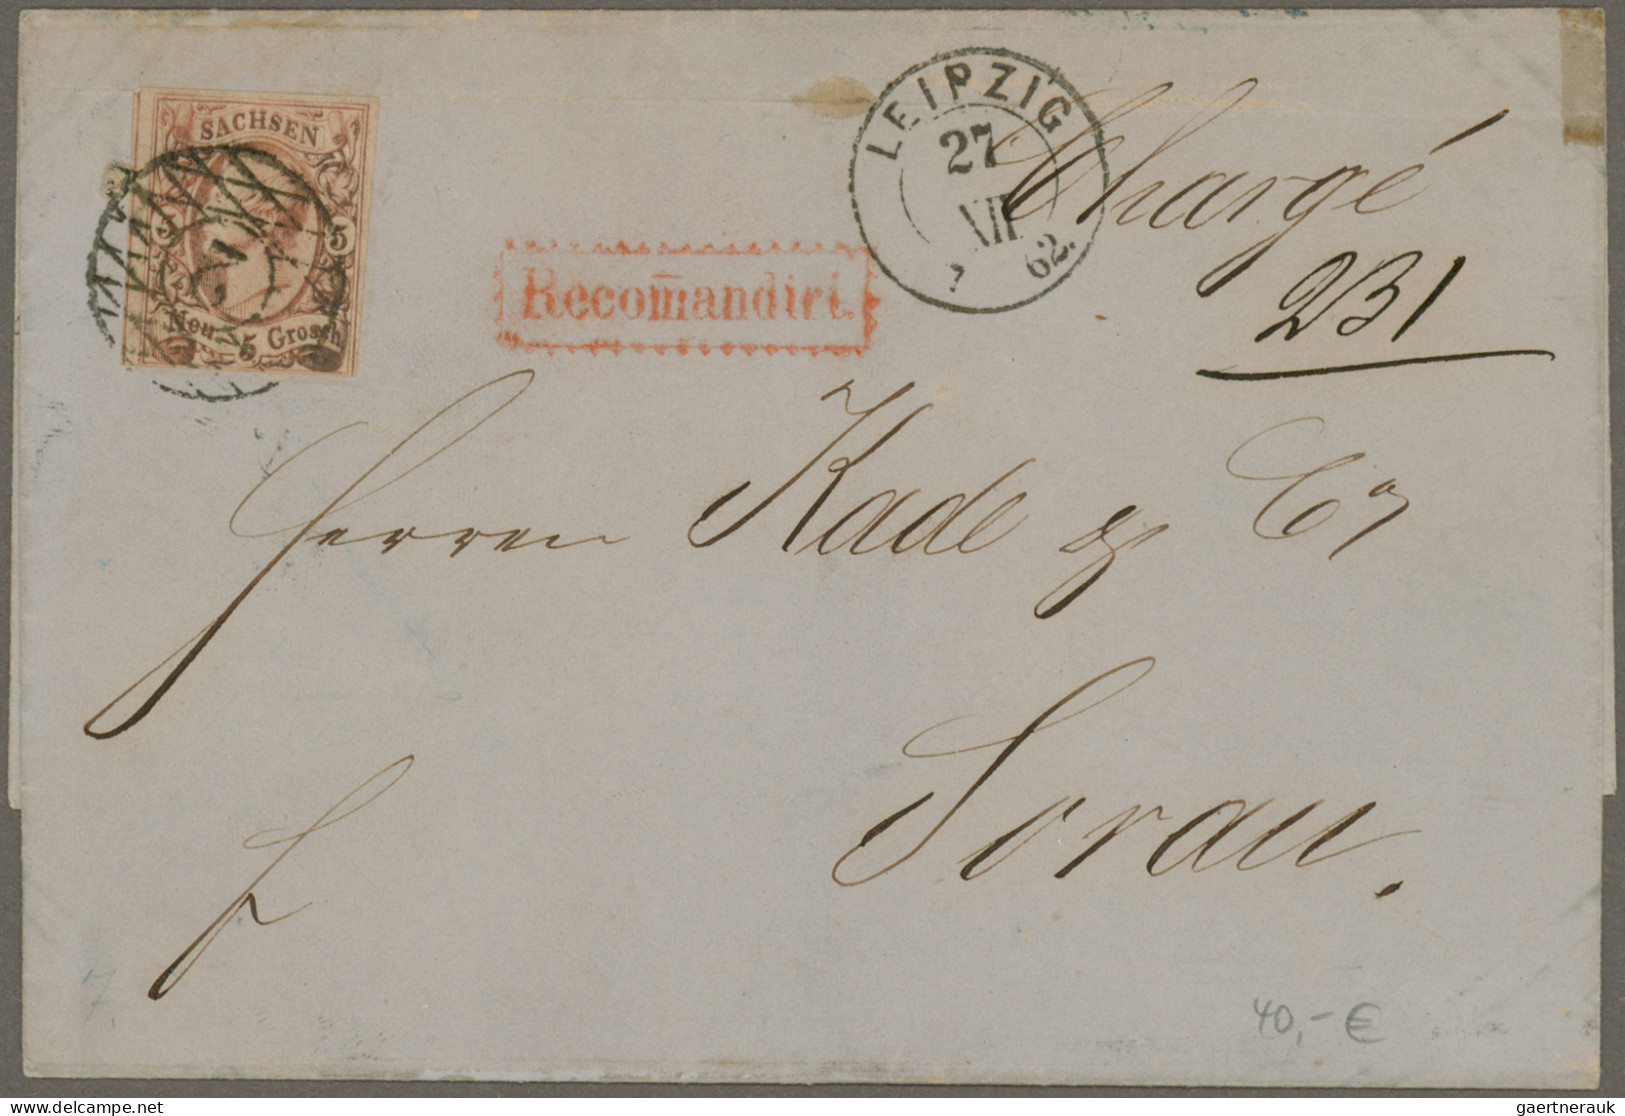 SACHSEN
5 5
Neu 5 Grosch
LEIPZIG
27
XII
62.
Recom̄andirt.
Chargé
231
Herren Kade & Co
Sorau.
7
40,- €
delcampe.net
gaertnerauk